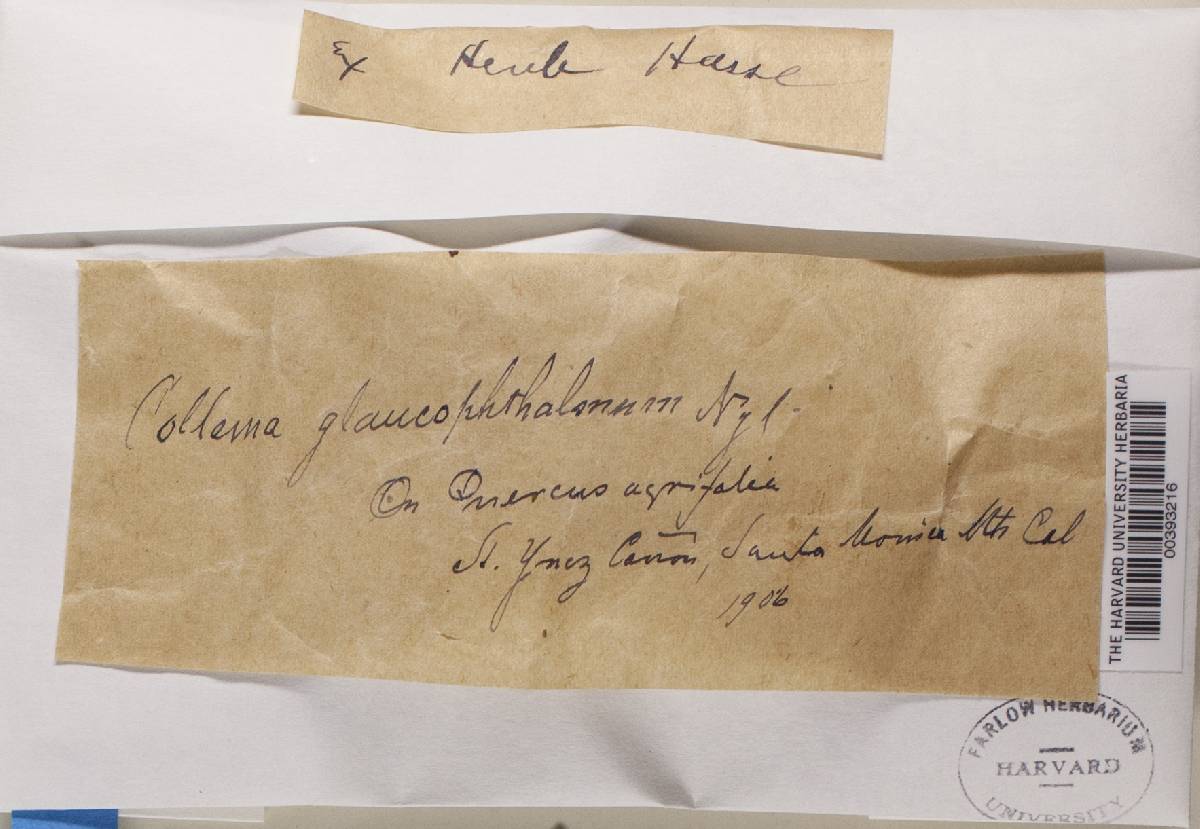 Ex Herb Hasse
Collema glaucophthalmum Nyl.
On Quercus agrifolia
St. Ynez Cañon, Santa Monica Mts Cal
1906
THE HARVARD UNIVERSITY HERBARIA
00393216
FARLOW HERBARIUM
HARVARD
UNIVERSITY